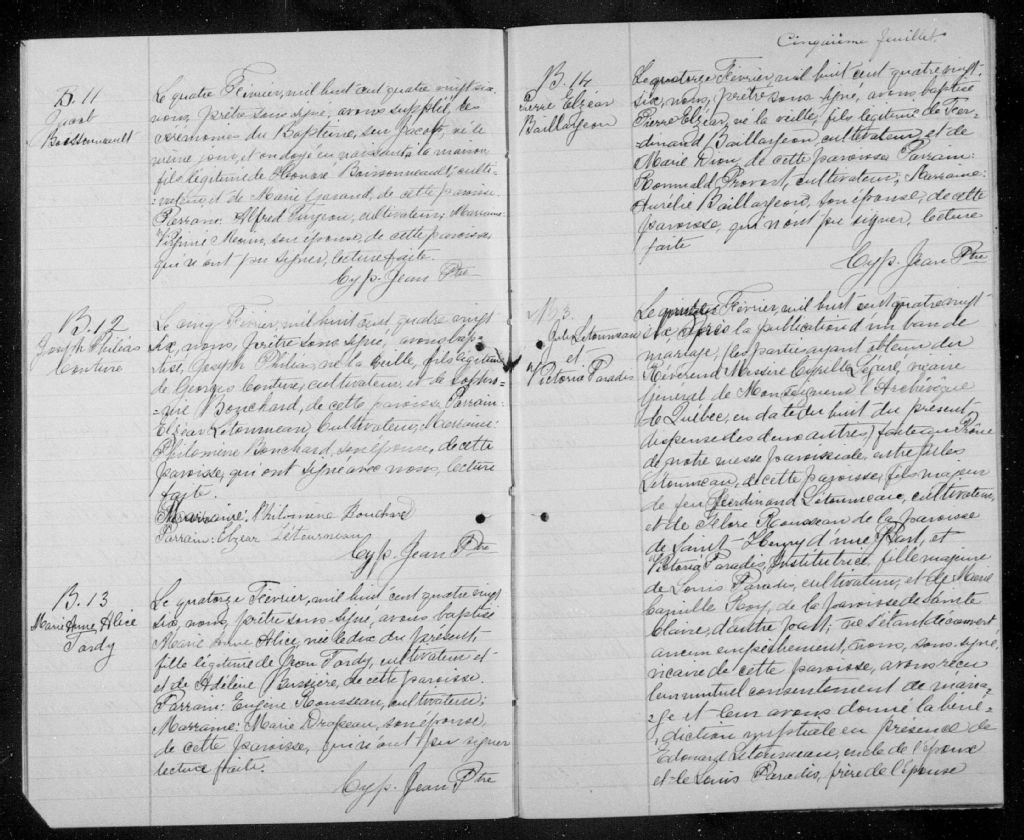 B. 11
Jacob
Boissonneault
Le quatre Février, mil huit cent quatre vingt six,
nous, prêtre sous-signé, avons suppléé les
cérémonies du Baptême, sous Jacob, né le
même jour, et ondoyé en naissant à la maison
fils légitime de Honoré Boissonneault, culti-
-vateur, et de Marie de cette paroisse.
Parrain: Alfred cultivateur; Marraine:
Virginie son épouse, de cette paroisse
qui n'ont pu signer, lecture faite.
Cyp. Jean Ptre
B. 12
Joseph Philéas
Couture
Le cinq Février, mil huit cent quatre vingt
six, nous, prêtre sous signé, avons bap-
tisé, Joseph Philéas, né la veille, fils légitime
de Georges Couture, cultivateur, et de
Bouchard, de cette paroisse, Parrain:
Elzéar Létourneau, Cultivateur; Marraine:
Philomène Bouchard, son épouse, de cette
paroisse, qui ont signé avec nous, lecture
faite.
Marraine. Philomène Bouchard
Parrain: Elzéar Létourneau
Cyp. Jean Ptre
B. 13
Marie Anne Alice
Tardy
Le quatorze Février, mil huit cent quatre vingt
six, nous, prêtre sous-signé, avons baptisé
Marie Anne Alice, née le dix du présent,
fille légitime de Jean Tardy, cultivateur et
et de Adéline Bussière, de cette paroisse.
Parrain: Eugène Rousseau, cultivateur;
Marraine: Marie Drapeau, son épouse,
de cette paroisse, qui n'ont pu signer
lecture faite.
Cyp. Jean Ptre
Cinquième feuillet.
B. 14
Pierre Elzéar
Baillargeon
Le quatorze Février, mil huit cent quatre vingt-
six, nous, prêtre sous signé, avons baptisé
Pierre Elzéar, né la veille, fils légitime de Fer-
dinand Baillargeon, cultivateur, et de
Marie Dion, de cette paroisse. Parrain:
Romuald Provost, cultivateur; Marraine:
Aurélie Baillargeon, son épouse, de cette
paroisse, qui n'ont pu signer, lecture
faite
Cyp. Jean Ptre
M. 3.
Létourneau
et
Victoria Paradis
Le Février, mil huit cent quatre vingt
six, après la publication d'un ban de
mariage, (les parties ayant obtenu du
Révérend Messire Cyrille Légaré, vicaire
Général de Monseigneur l'Archevêque
de Québec, en date du huit du présent
dispense des deux autres) faite au Prône
de notre messe paroissiale, entre
Létourneau, de cette paroisse, fils majeur
de feu Ferdinand Létourneau, cultivateur,
et de Flore Rousseau de la paroisse
de Saint-Henry d'une Part, et
Victoria Paradis, Institutrice, fille majeure
de Louis Paradis, cultivateur, et de Marie
Camille Roy, de la paroisse de Sainte
Claire, d'autre part; ne s'étant découvert
aucun empêchement, nous, sous-signé,
vicaire de cette paroisse, avons reçu
leur mutuel consentement de maria-
ge et leur avons donné la béné-
diction nuptiale en présence de
Edouard Létourneau, oncle de l'époux
et de Louis Paradis, frère de l'épouse